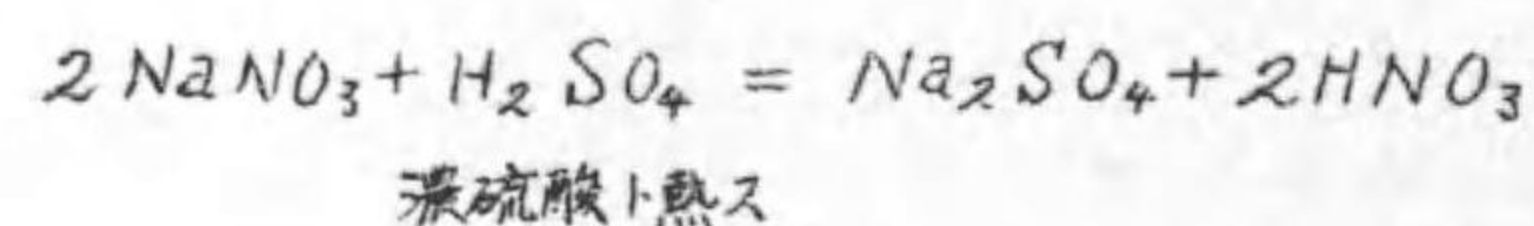 2NaNO₃ + H₂SO₄ = Na₂SO₄ + 2HNO₃
濃硫酸ト熱ス